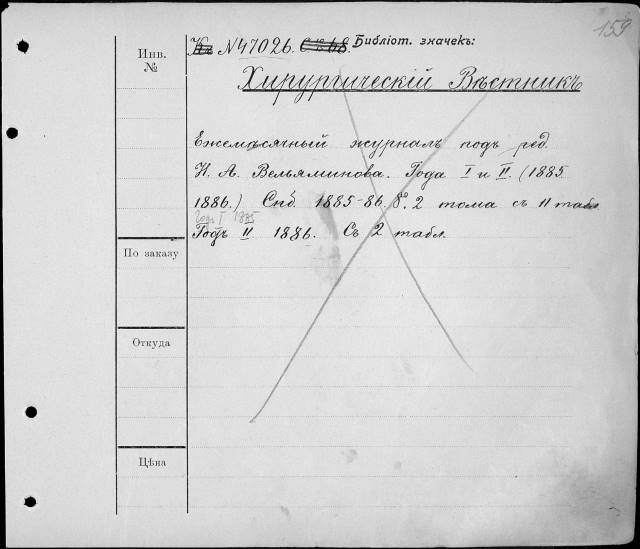 159
Инв. №
N 47026.
Библіот. значекъ:
Хирургическій Вѣстникъ
Ежемѣсячный журналъ подъ ред.
Н. А. Вельяминова. Года I и II. (1885
1886.) Спб. 1885-86. 8º. 2 тома съ 11 табл.
Годъ I 1885
Годъ II 1886. Съ 2 табл.
По заказу
Откуда
Цѣна